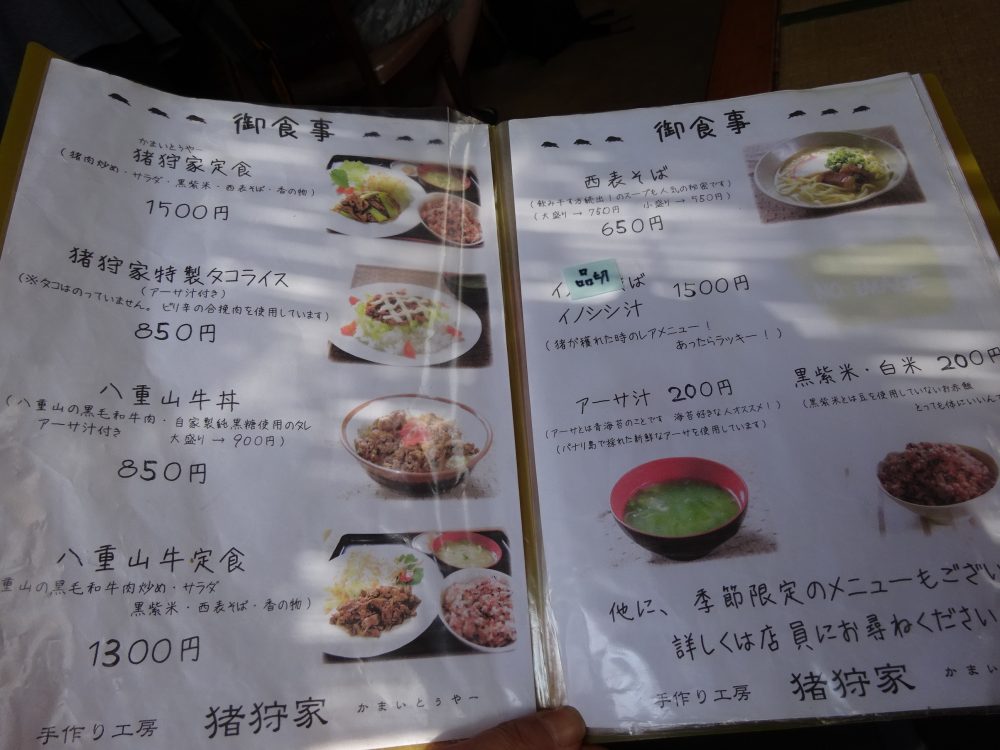 御食事
かまいとうやー
猪狩家定食
(猪肉炒め・サラダ・黒紫米・西表そば・香の物)
1500円
猪狩家特製タコライス
(アーサ汁付き)
(※タコはのっていません。ピリ辛の合挽肉を使用しています)
850円
八重山牛丼
(八重山の黒毛和牛肉・自家製純黒糖使用のタレ
アーサ汁付き 大盛り→900円)
850円
八重山牛定食
重山の黒毛和牛肉炒め・サラダ
黒紫米・西表そば・香の物)
1300円
手作り工房 猪狩家 かまいとうやー
御食事
西表そば
(飲み干す方続出!のスープも人気の秘密です)
(大盛り→750円 小盛り→550円)
650円
品切
イ ば 1500円
イノシシ汁
(猪が穫れた時のレアメニュー!
あったらラッキー!)
アーサ汁 200円
(アーサとは青海苔のことです 海苔好きな人オススメ!)
(パナリ島で採れた新鮮なアーサを使用しています)
黒紫米・白米 200円
(黒紫米とは豆を使用していないお赤飯
とっても体にいいんで
他に、季節限定のメニューもござい
詳しくは店員にお尋ねください
手作り工房 猪狩家 かまい